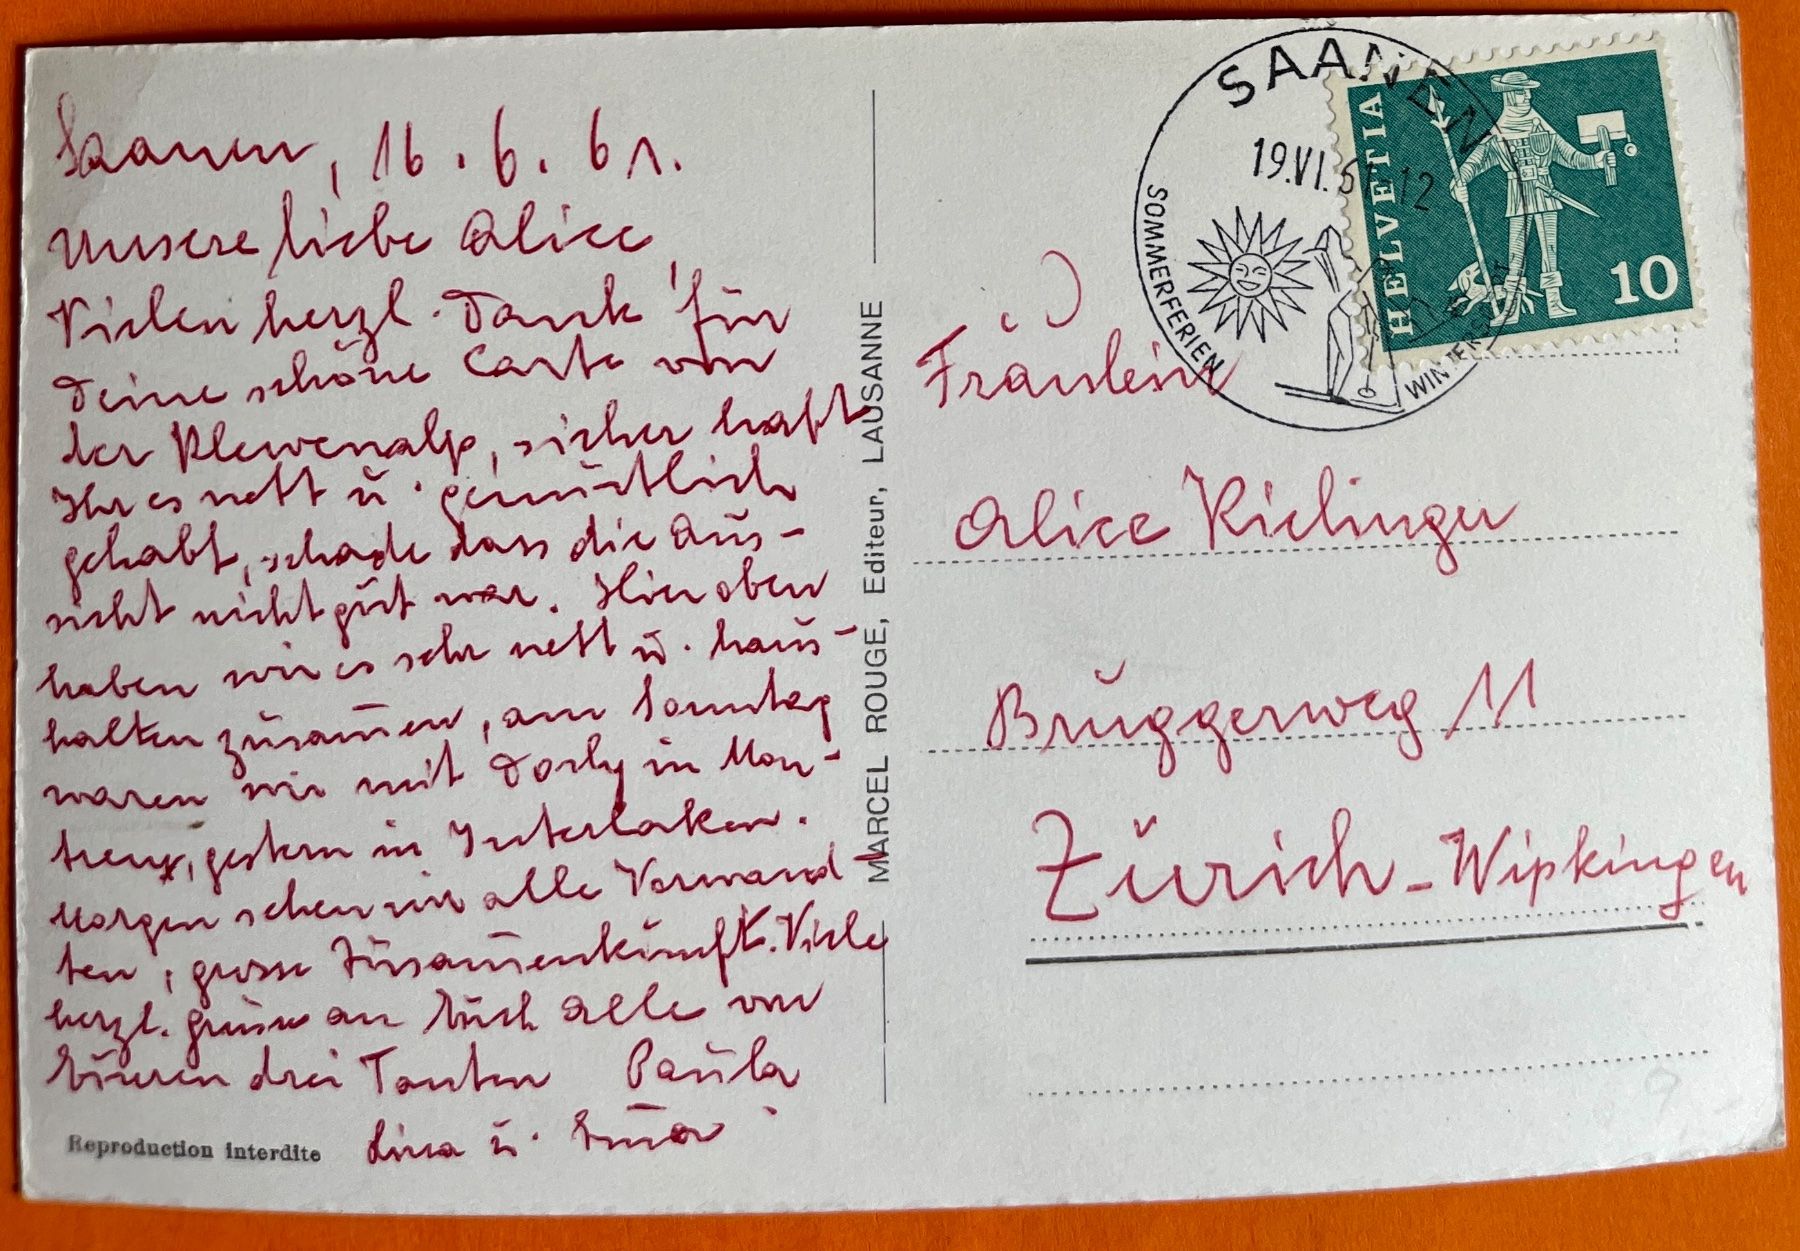 Saanen, 16.6.61.
Unsere liebe Alice,
Vielen herzl. Dank für
Deine schöne Carte von
der Klewenalp, sicher habt
Ihr es nett u. gemütlich
gehabt, schade dass die Aus-
sicht nicht gut war. Hier oben
haben wir es sehr nett u. haus-
halten zusam̄en, am Sonntag
waren wir mit Dorly in Mon-
treux, gestern in Interlaken.
Morgen sehen wir alle Verwand-
ten, grosse Zusam̄enkunft. Viele
herzl. grüsse an Euch alle von
Eueren drei Tanten Paula
Lina u. Em̄a
Reproduction interdite
MARCEL ROUGE, Editeur, LAUSANNE
SAANEN
19.VI.61-12
SOMMERFERIEN
WINTERSPORT
HELVETIA
10
Fräulein
Alice Kielinger
Bruggerweg 11
Zürich-Wipkingen